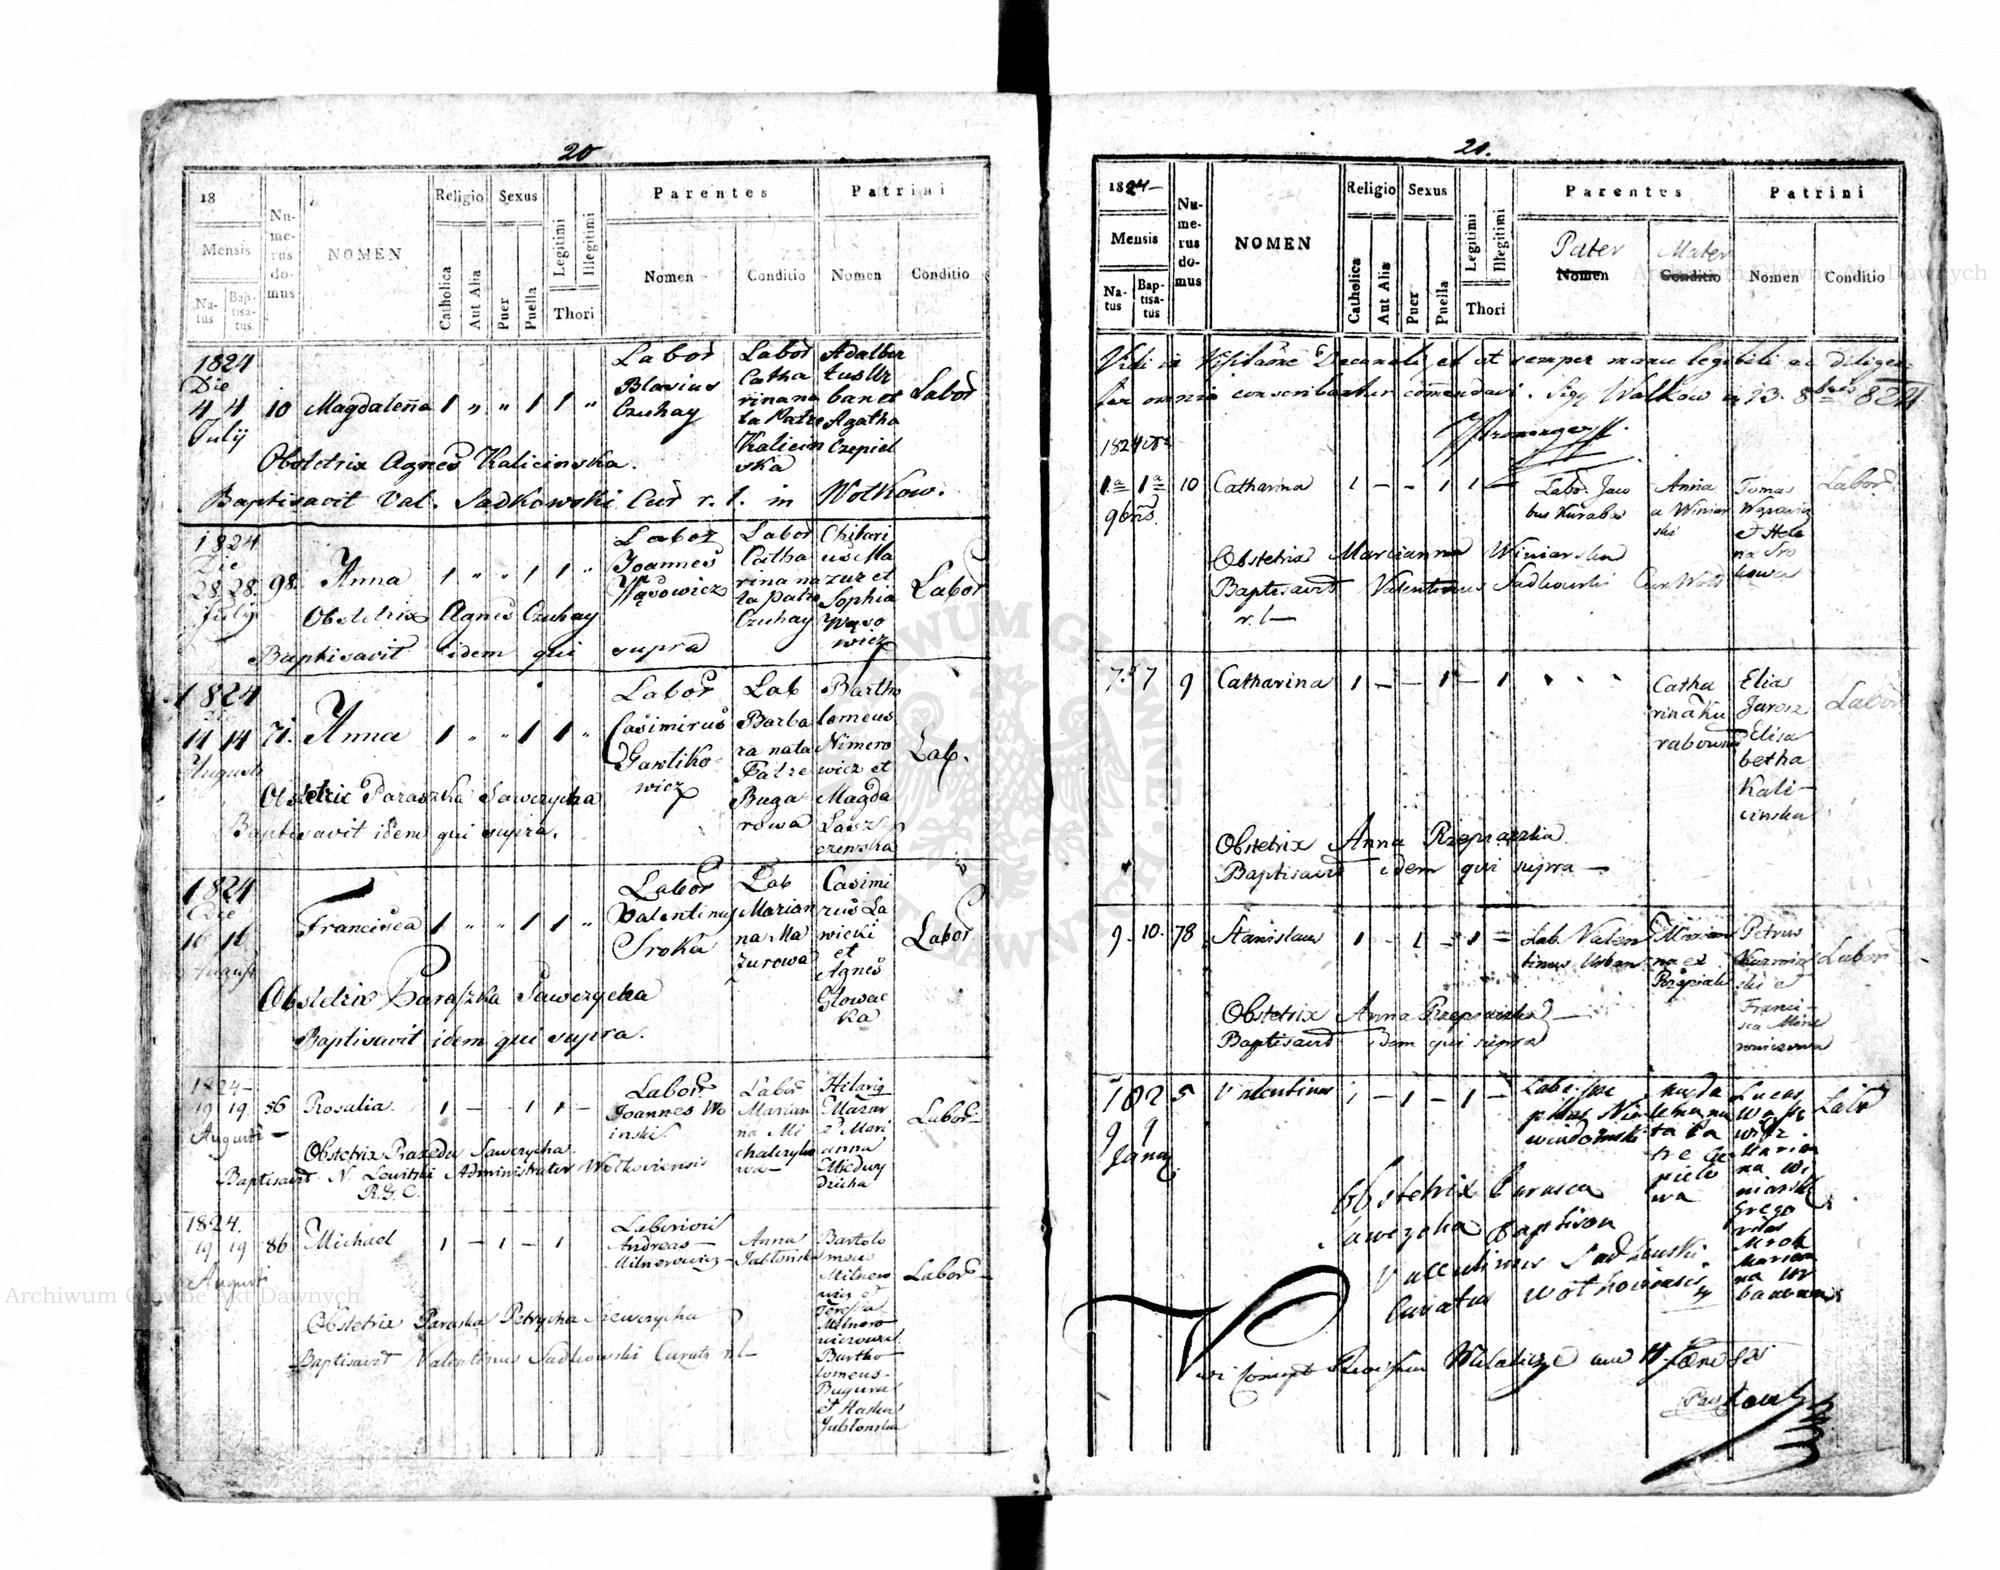 20
18
Mensis
Na-
tus
Bap-
tisa-
tus
Nu-
me-
rus
do-
mus
NOMEN
Religio
Catholica
Aut Alia
Sexus
Puer
Puella
Legitimi
Illegitimi
Thori
Parentes
Nomen
Conditio
Patrini
Nomen
Conditio
1824
Die
4 4
July
10 Magdalena 1 " " 1 1 "
Labor
Blasius
Czuhay
Labor
Catha
rina na
ta Patre
Kalicin
ska
Adalber
tus Ur
ban et
Agatha
Czepiel
Labor
Obstetrix Agnes Kalicinska.
Baptisavit Val. Sadkowski Cur r. l. in Wolkow.
1824
Die
28 28.
July
98. Anna 1 " " 1 1 "
Labor
Joannes
Wąsowicz
Labor
Catha
rina na
ta patre
Czuhay
Chilari
us Ma
zur et
Sophia
Wąso
wicz
Labor
Obstetrix Agnes Czuhay
Baptisavit idem qui supra
1824
14 14
Augusti
71. Anna 1 " " 1 1 "
Labor
Casimirus
Gawliko-
wicz
Lab
Barba
ra nata
Patre
Buga
rowa
Bartho
lomeus
Nimero
wicz et
Magda
Lasz
czewska
Lab.
Obstetric Paraszka Sawczycha
Baptisavit idem qui supra.
1824
Die
16 16
August
Francisca 1 " " 1 1 "
Labor
Valentinus
Sroka
Lab
Marian
na Ma
zurowa
Casimi
rus La
wicki
et
Agnes
Glowac
ka
Labor
Obstetrix Paraszka Sawczycha
Baptisavit idem qui supra.
1824-
19 19
Augusti
86 Rosalia. 1 - - 1 1 -
Labor
Joannes Wo
inski
Labor
Marian
na Mi
chalczyko
wa-
Hilariq
Mazur
Mari
anna
Niedwy
dzicha
Labor-
Obstetrix Praxeda Sawczycha.
Baptisavit N. Lewitski Administrator Wolkoviensis
R. G. C.
1824.
19 19
Augusti
86 Michael 1 - 1 - 1
Laboriosi
Andreas-
Milnerowicz-
Anna
Jabłońska
Bartolo
meus
Milnero
wicz et
Teressa
Milnero
wiczowa
Bartho
lomeus-
Bugura
et
Jabłonska
Labor-
Obstetrix Paraska Petrycha Szewczycha
Baptisavit Valentinus Sadkowski Curats r l-
21.
1824-
Mensis
Na-
tus
Bap-
tisa-
tus
Nu-
me-
rus
do-
mus
NOMEN
Religio
Catholica
Aut Alia
Sexus
Puer
Puella
Legitimi
Illegitimi
Thori
Parentes
Pater
Nomen
Mater
Conditio
Patrini
Nomen
Conditio
Vidi in Visitatione Decanali et ut semper manu legibili ac diligen-
ter omnia conscribantur commendavi. Sig Wolkow 23. 8bris 824
1824
1a 1a
9bris
10 Catharina 1 - - 1 1 -
Labor. Jaco
bus Kurabas
Anna
a Winiar
ski
Tomas
Wąsowicz
et Hele
na Sro
kowa
Labor
Obstetrix Marcianna Winiarska
Baptisavit Valentinus Sadkowski Cur. Wolk
r. l-
7. 7 9 Catharina 1 - - 1 - 1
Catha
rina Ku
rabowna
Elias
Jarosz
Elisa
betha
Kali-
cinska
Labor
Obstetrix Anna Rzepiazka
Baptisavit idem qui supra -
9. 10. 78 Stanislaus 1 - 1 - 1 -
Lab. Valen
tinus Urban
Marian
na ex
Petrus
Kuzmin
ski et
Franci-
sca
Labor
Obstetrix Anna Rzepiazka -
Baptisavit idem qui supra
182 5 Valentinus 1 - 1 - 1 -
9 9
Januar
Magda
lena na
ta Pa
tre
Lucas
Marian
na Wi
niarski
Grego
rius
Mrok
Marian
na Ur
banowa
Lab
Obstetrix Parasca
Sawczycha Baptisav
Valentinus Sadkowski.
Curatus Wolkoviensis
Archiwum Główne Akt Dawnych
Archiwum Główne Akt Dawnych
ARCHIWUM GŁÓWNE AKT DAWNYCH